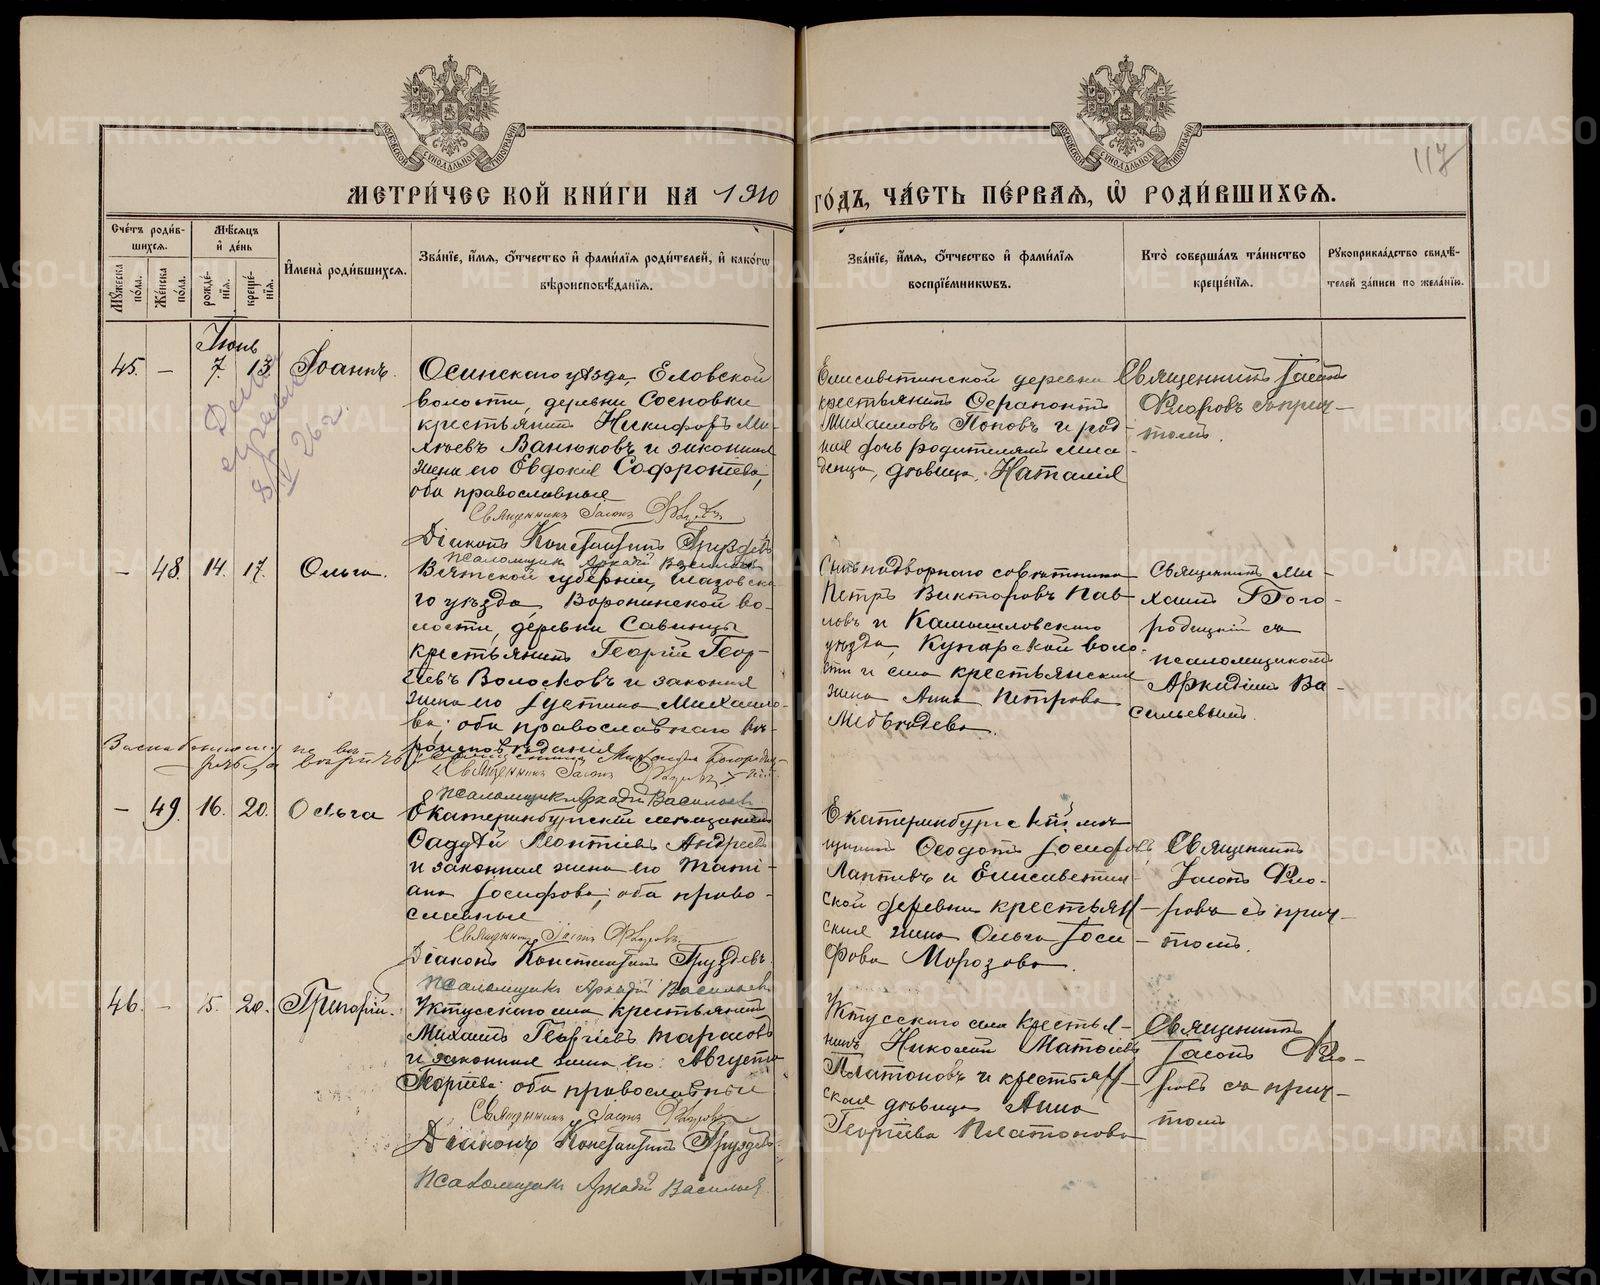 МЕТРИЧЕСКОЙ КНИГИ НА 1910 ГОДЪ, ЧАСТЬ ПЕРВАЯ, Ѡ РОДИВШИХСЯ.
117
Счетъ родившихся.
Мужеска пола.
Женска пола.
Мѣсяцъ и день
рожденія.
крещенія.
Имена родившихся.
Званіе, имя, отчество и фамилія родителей, и какогѡ вѣроисповѣданія.
Званіе, имя, отчество и фамилія воспріемникѡвъ.
Кто совершалъ таинство крещенія.
Рукоприкладство свидѣтелей записи по желанію.
Іюнь
45. — 7. 13 Іоаннъ.
Осинскаго уѣзда, Еловской
волости, деревни Сосновки
крестьянинъ Никифоръ Ми-
хѣевъ Ванюковъ и законная
жена его Евдокія Софроніева,
оба православные
Священникъ Іасонъ Флоровъ
Діаконъ Константинъ Груздевъ
Псаломщикъ Аркадій Васильевъ
Елисаветинской деревни
крестьянинъ Серапіонъ
Михаиловъ Поповъ и род-
ная дочь родителей мла-
денца, дѣвица, Наталія
Священникъ Іасонъ
Флоровъ съ прич-
томъ.
— 48. 14. 17. Ольга.
Вятской губерніи, Глазовска-
го уѣзда, Воронинской во-
лости, деревни Савинцы
крестьянинъ Георгій Геор-
гіевъ Волосковъ и законная
жена его Іустина Михаило-
ва; оба православнаго вѣ-
роисповѣданія
Священникъ Іасонъ Флоровъ
Псаломщикъ Аркадій Васильевъ
Сынъ надворнаго совѣтника
Петръ Викторовъ Пав-
ловъ и Камышловскаго
уѣзда, Кунарской воло-
сти и села крестьянская
жена Анна Петрова
Медвѣдева.
Священникъ Ми-
хаилъ Бого-
родицкій съ
псаломщикомъ
Аркадіемъ Ва-
сильевымъ.
— 49. 16. 20. Ольга
Екатеринбургскій мѣщанинъ
Фаддей Леонтіевъ Андреевъ
и законная жена его Тати-
ана Іосифова; оба право-
славные
Священникъ Іасонъ Флоровъ
Діаконъ Константинъ Груздевъ.
Псаломщикъ Аркадій Васильевъ
Екатеринбургскій мѣ-
щанинъ Ѳеодотъ Іосифовъ
Лаптевъ и Елисаветин-
ской деревни крестьян-
ская жена Ольга Іоси-
фова Морозова.
Священникъ
Іасонъ Фло-
ровъ съ прич-
томъ.
46. — 15. 20. Григорій.
Уктусскаго села крестьянинъ
Михаилъ Георгіевъ Тарасовъ
и законная жена его: Августа
Георгіева: оба православные
Священникъ Іасонъ Флоровъ
Діаконъ Константинъ Груздевъ
Псаломщикъ Аркадій Васильевъ
Уктусскаго села крестья-
нинъ Николай Матвіевъ
Платоновъ и крестьян-
ская дѣвица Анна
Георгіева Платонова
Священникъ
Іасонъ Фло-
ровъ съ прич-
томъ
METRIKI.GASO-URAL.RU